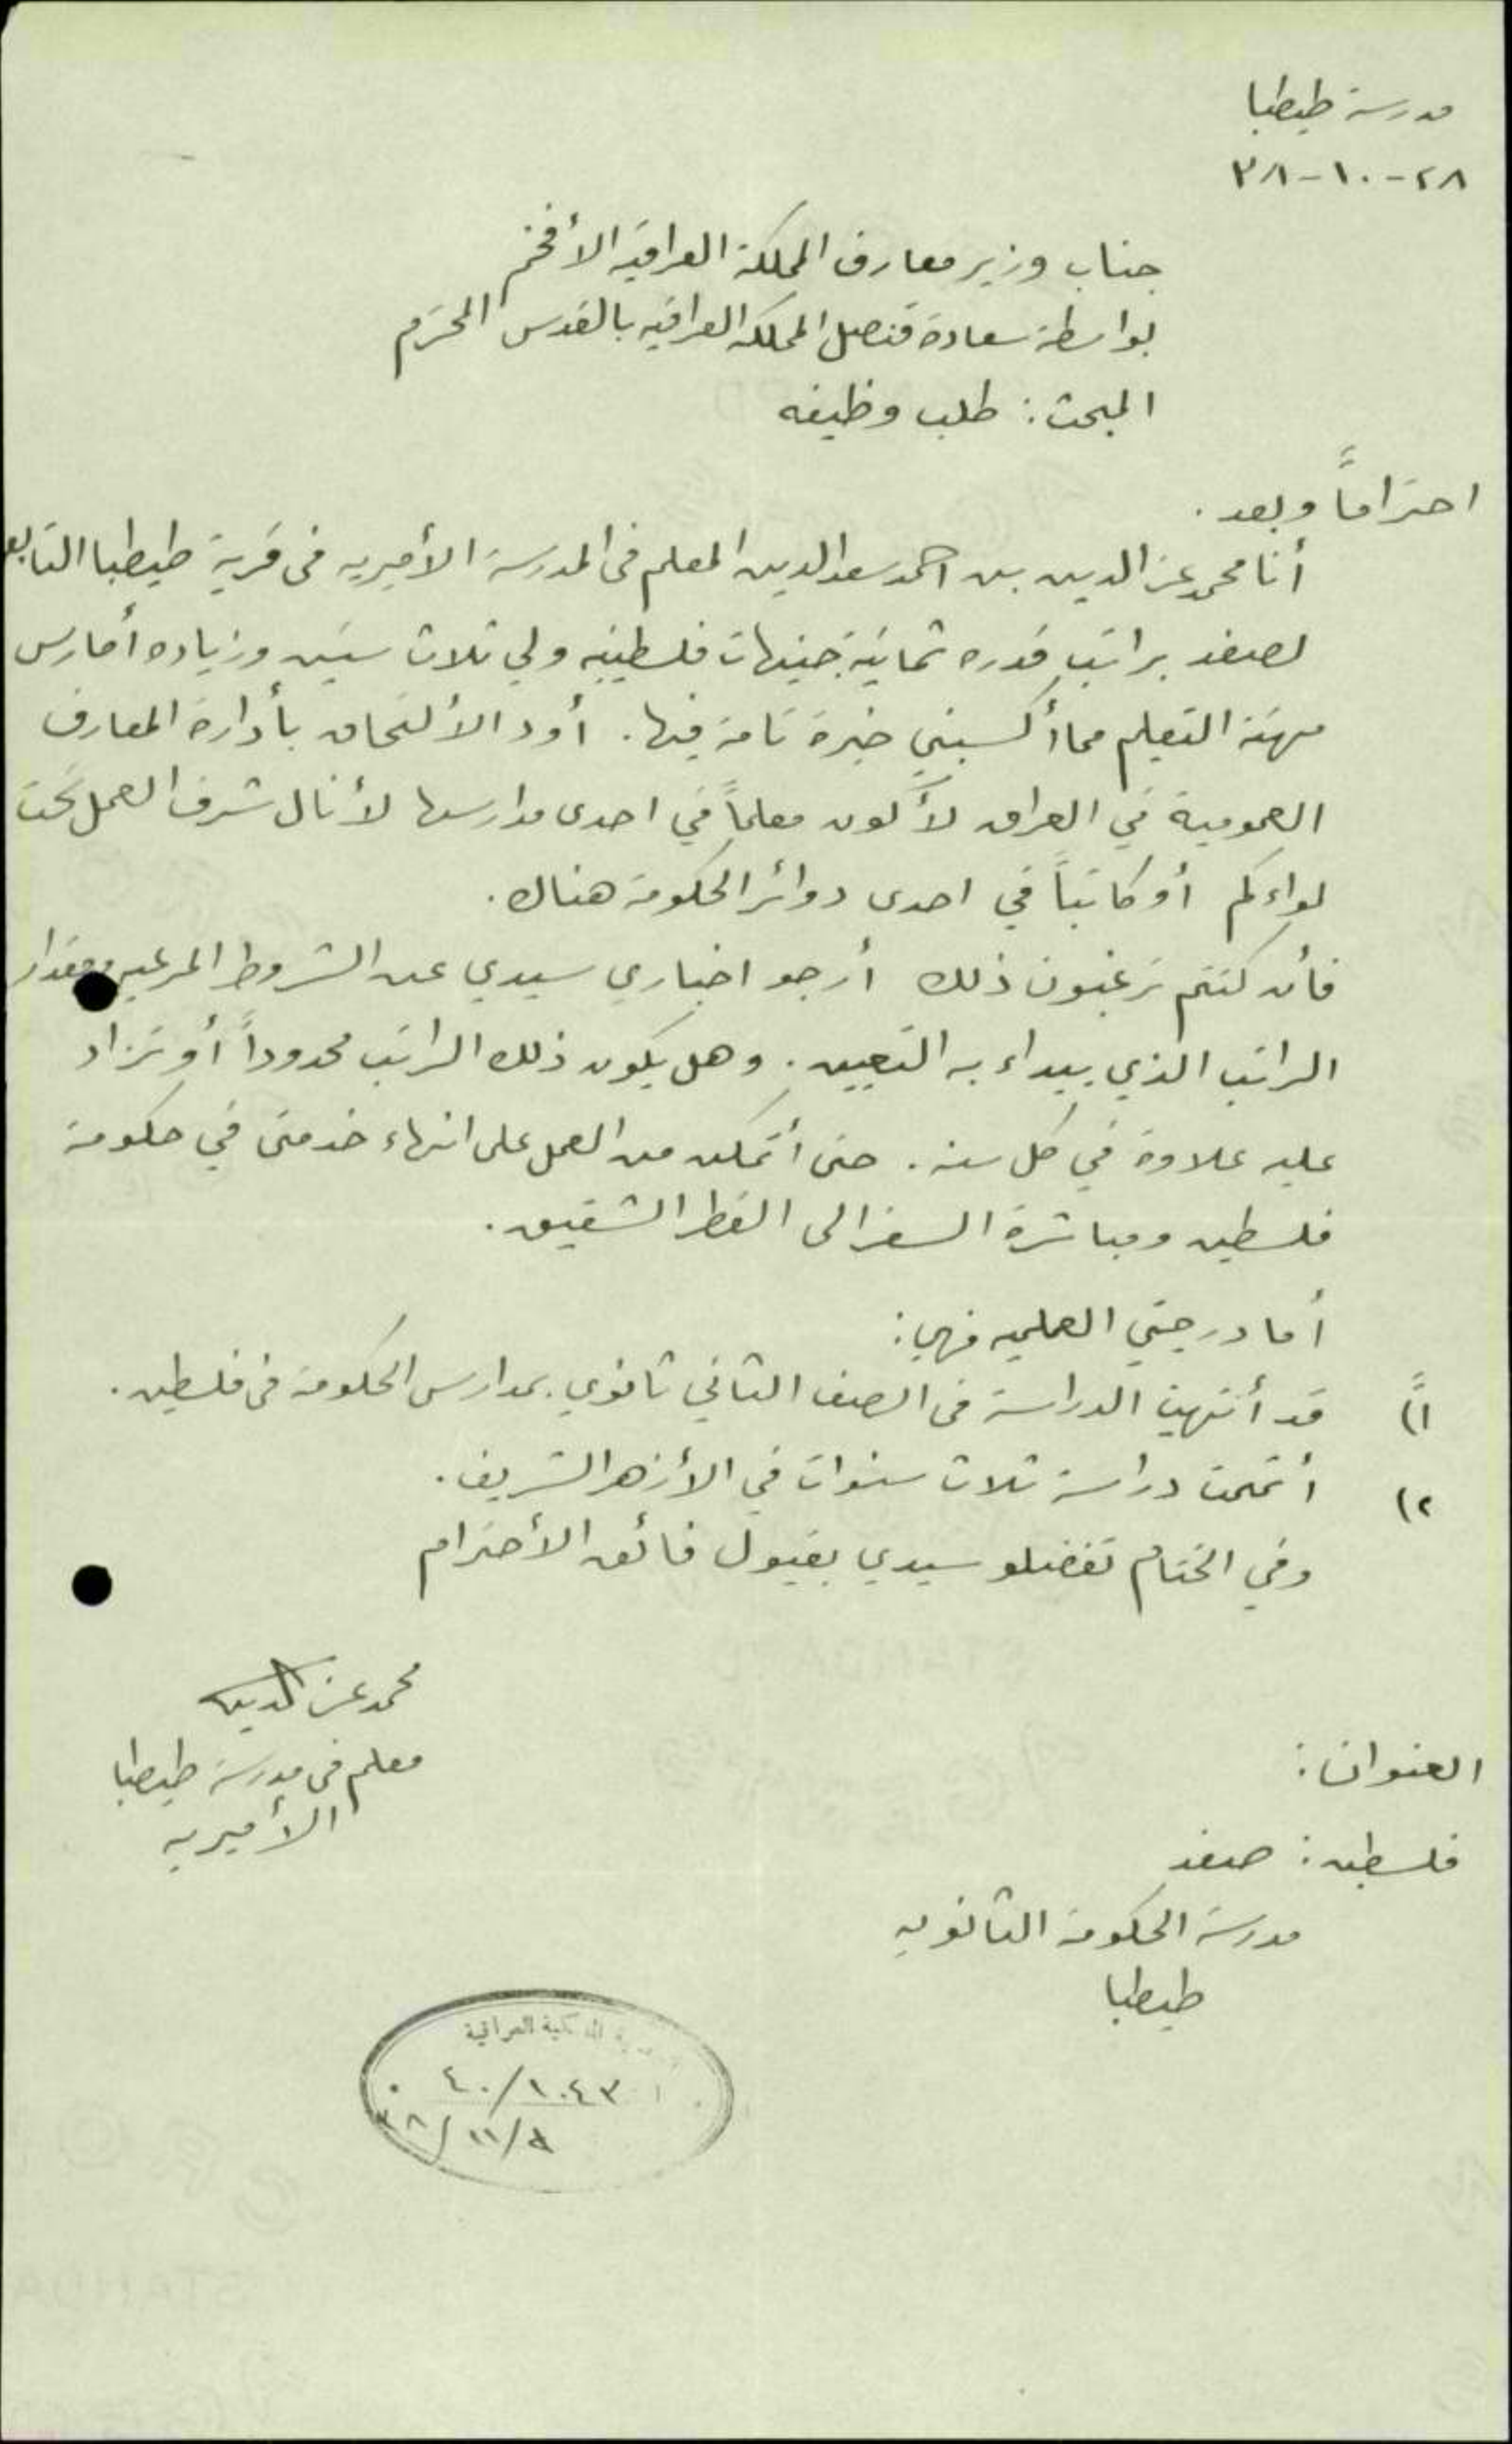 مدرسة طيطبا
٢٨-١٠-٣٨
جناب وزير معارف المملكة العراقية الأفخم
بواسطة سعادة قنصل المملكة العراقيه بالقدس المحترم
المبحث: طلب وظيفه
احتراماً وبعد.
أنا محمد عز الدين بن احمد سعد الدين المعلم في المدرسة الأميريه في قرية طيطبا التابعه
لصفد براتب قدره ثمانية جنيهات فلسطينيه ولي ثلاث سنين وزياده أمارس
مهنة التعليم مما أكسبني خبرة تامة فيها. أود الألتحاق بأدارة المعارف
العمومية في العراق لأكون معلماً في احدى مدارسها لأنال شرف العمل تحت
لواءكم أو كاتباً في احدى دوائر الحكومة هناك.
فأن كنتم ترغبون ذلك أرجو اخباري سيدي عن الشروط المرعيه ومقدار
الراتب الذي يبداء به التعيين. وهل يكون ذلك الراتب محدوداً أو تزاد
عليه علاوة في كل سنه. حتى أتمكن من العمل على انهاء خدمتي في حكومة
فلسطين ومباشرة السفر الى القطر الشقيق.
أما درجتي العلميه فهي:
١ً) قد أنتهيت الدراسة في الصف الثاني ثانوي بمدارس الحكومة في فلسطين.
٢) أتممت دراسة ثلاث سنوات في الأزهر الشريف.
وفي الختام تفضلو سيدي بقبول فائق الأحترام
محمد عز الدين
معلم في مدرسة طيطبا
الأميريه
العنوان:
فلسطين: صفد
مدرسة الحكومة الثانويه
طيطبا
الملكية العراقية
٤٠/١٠٤٣
٩/١١/٣٨